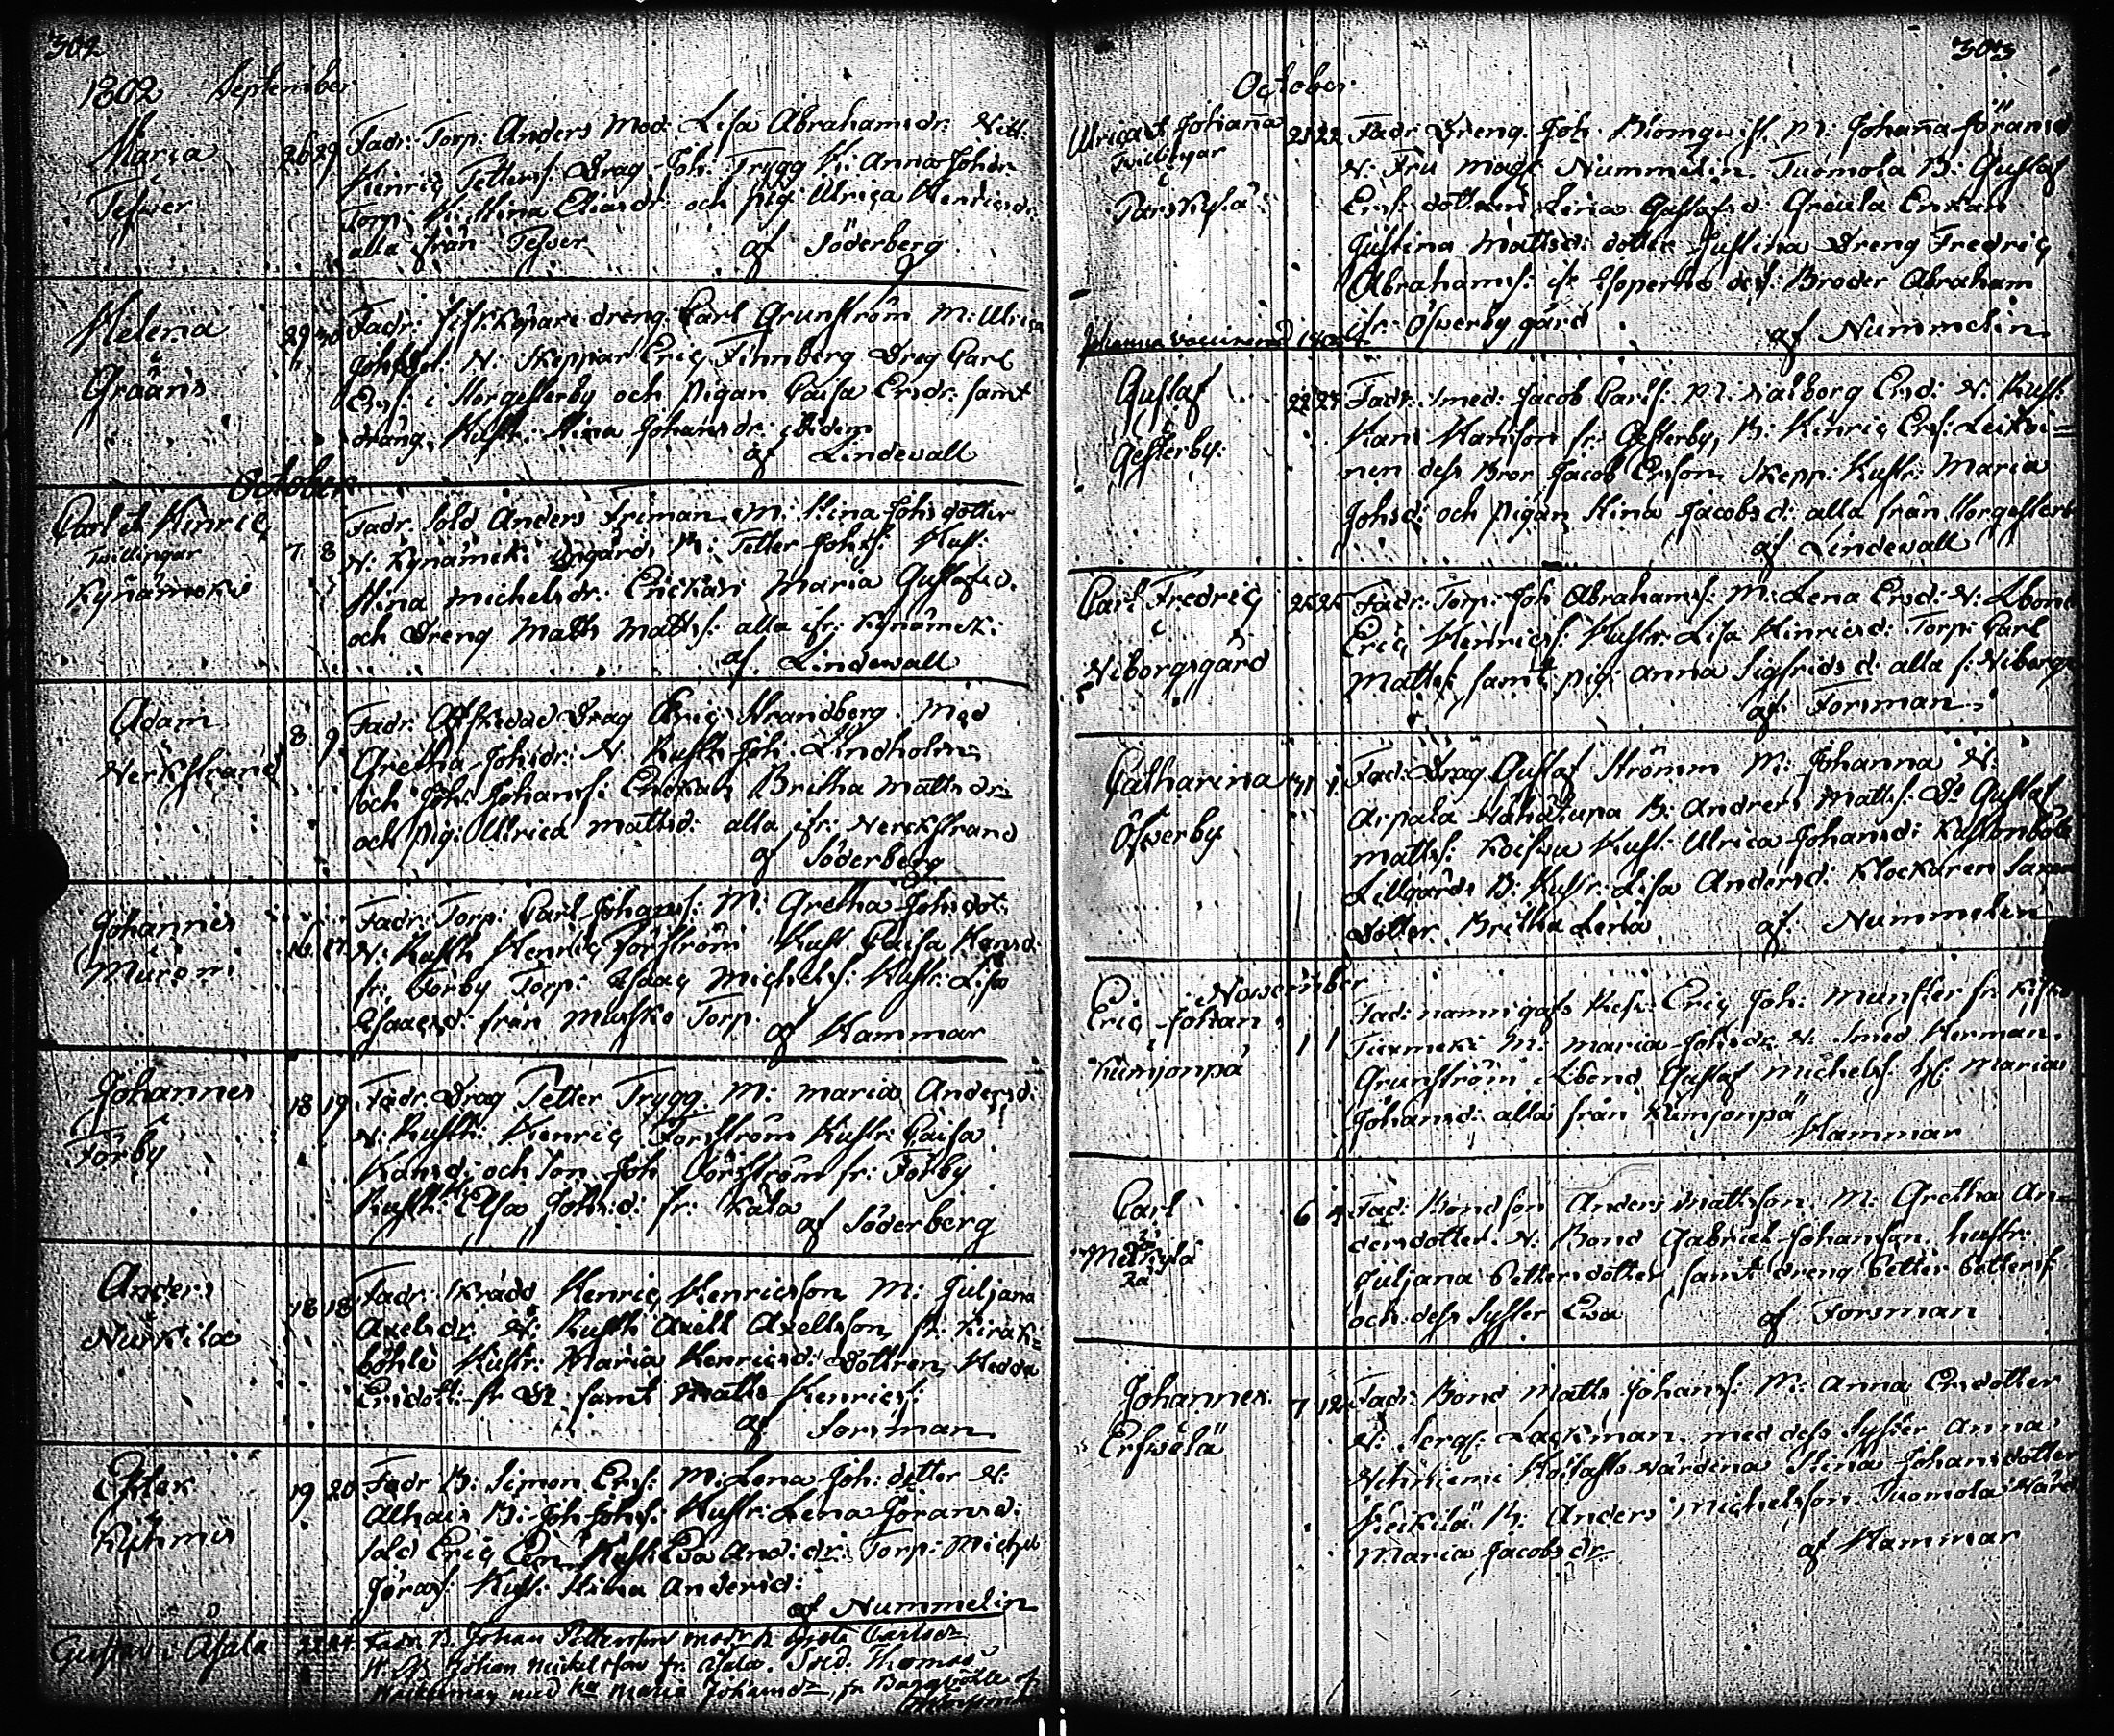 302
1802 September
Maria
i
Tesver
26 29
Fadr: Torp: Anders Mod: Lisa Abrahamsdr: Vitt:
Henric Petters: Drag. Joh: Trygg H: Anna Johsdr
Torp: H: Stina Eliasdr: och pig: Ulrica Henricsdr:
alla från Tesver af Söderberg
Helena
i
Grääns
29 30
Fadr: Fiskkjöpare dreng: Carl Grunström M: Ulrica
Johsdot: V: Skeppar Eric Finnberg Dreg Carl
Ers: i Norgesterby och Pigan Caisa Ersdr. samt
dräng. Hustr: Stina Johansdr: ibidem
af Lindevall
October
Carl & Hinric
Twillingar
Kynämeki
7 8
Fadr. Sold Anders Friman M: Stina Johsdotter
V: Kynämeki B: Petter Johs: Hus:
Stina Michelsdr: Enckan Maria Gustafsd.
och Dreng Matts Matts: alla ifr: Kynämek:
af Lindewall
Adam
i
Nerkstrand
8 9
Fadr: Afskedad Drag Eric Strandberg Mod
Gretha Johsdr: V: Rusth Joh: Lindholm
och Joh: Johans: Enckan Britha Mattsdr:
och pig: Ulrica Mattsd: alla ifr: Nerckstrand
af Söderberg
Johannes
i
Muroni
16 17
Fadr: Torp: Carl Johans: M: Gretha Johsdot:
V: Rusth Henric Forström Hust Caisa Hansd
fr: Förby Torp: Isaac Michels: Hustr: Lisa
Isaacsd: från Musko Torp. af Hammar
Johannes
i
Förby
18 19
Fadr. Drag Petter Trygg M: Maria Andersd:
V: Rusth: Henric Forström Hustr: Caisa
Hansd: och Son Joh Forström fr: Förby
Hustr: Elsa Johsd: fr: Kåla
af Söderberg
Anders
i
Nurkila
18 18
Fadr. Skrädd Henric Henricsson M: Juljana
Axelsdr V: Rusth Axell Axellsson, fr: Kirak=
böhle Hustr: Maria Henricsd: Dottren Hedda
Ersdott: fr Do samt Matts Henrics:
af Forsman
Ester
i
Kyhmis
19 20
Fadr B: Simon Ers: M: Lena Joh: dotter V:
Alhais B: Joh Johs: Hustr: Lena Göransd:
Sold Eric Hust: Eva And:dr: Torp: Michel
Göras: Hust: Stina Andersd:
af Nummelin
Gustav i Asala 22 24
Fadr B. Johan Pettersson modr h Greta Carlsdr
V B: Johan Mickelsson fr: Asala. Sold. Thomas
med ha Maria Johansdr, fr Bargböhle af
303
October
Ulrica & Johanna
Twillingar
i
Parskylä
21 22
Fadr: Dreng. Joh. Blomqvist. M: Johanna Jörans
V: Fru Mag: Nummelin. Tuomola B: Gustaf
Ers: dottren Lena Gustafsd: Greula Enkan
Justina Mattsd: dotter Justina Dreng Fredric
Abrahams: ifr Isoperhe dess: Broder Abraham
ifr: Öfverby gård af Nummelin
Johanna vaccinerad 1804
Gustaf
i
Gesterby:
22 24
Fadr: Smed: Jacob Carls: M: Valborg Ersd: V: Rust:
Hans Hansson fr: Gesterby, B: Hinric Ers: Leikoi=
nen dess Bror Jacob Ersson Skepp: Hustr: Maria
Johsd: och Pigan Stina Jacobsd: alla från Norgesterb
af Lindevall
Carl Fredric
i
Viborgsgård
25 25
Fadr: Torp: Joh Abrahams: M: Lena Ersd: V: Lbond
Eric Henrics: Hustr: Lisa Hinricsd: Torp: Carl
Matts: samt pig: Anna Sigfridsd: alla f: Viborgs
af Forsman
Catharina
i
Öfwerby
31 1
Fad: Drag Gustaf Strömm M: Johanna V:
Arpala B: Anders Matts: Do Gustaf
Matts: Koiswu Hust: Ulrica Johansd:
Lillgårds B: Hustr: Lisa Andersd: Klockaren Saxen
dotter Britha Lena af Nummelin
November
Eric Johan
i
Kumjonpä
1 1
Eric Joh: Munster fr:
M: Maria Johsdr V: Smed Herman
Grunström Lbond Gustaf Michels: h: Maria
Johansd: alla från Kumjonpä
Hammar
Carl
i
Merkylä
6 7
Fad: Bondson Anders Mattsson. M: Gretha An=
dersdotter V: Bond Gabriel Johansson, hustr:
Juljana Pettersdotter samt dreng Petter Petters:
och dess Syster Eva af Forsman
Johannes
i
Erfwelä
7 12
Fad: Bond Matts Johans: M: Anna Ersdotter
V: Serg: Lackman med dess Syster Anna
Stina Johansdotter
B: Anders Michelsson Tuomola
Maria Jacobsdr af Hammar